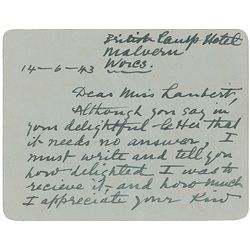 British Camp Hotel
Malvern
Worcs.
14-6-43
Dear Miss Lambert,
Although you say in
your delightful letter that
it needs no answer, I
must write and tell you
how delighted I was to
recieve it, and how much
I appreciate your kind